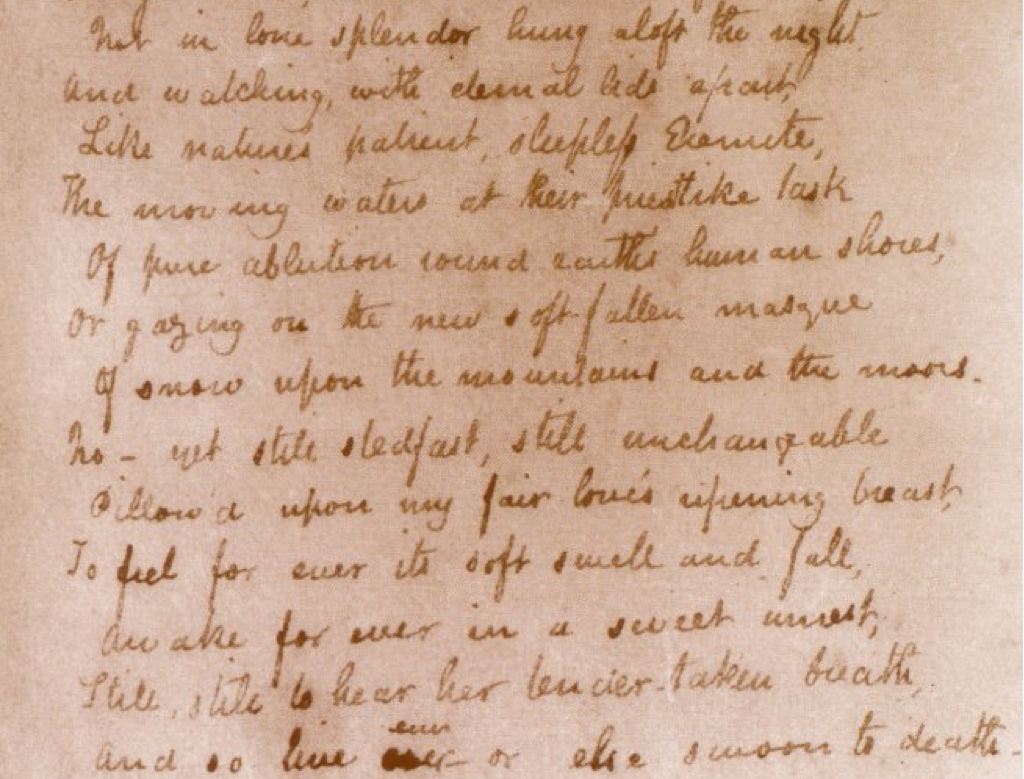 Not in lone splendor hung aloft the night
And watching, with eternal lids apart,
Like natures patient, sleepless Eremite,
The moving waters at their priestlike task
Of pure ablution round earths human shores,
Or gazing on the new soft-fallen masque
Of snow upon the mountains and the moors.
No — yet still stedfast, still unchangeable
Pillow'd upon my fair love's ripening breast,
To feel for ever its soft swell and fall,
Awake for ever in a sweet unrest,
Still, still to hear her tender-taken breath,
And so live ever — or else swoon to death —